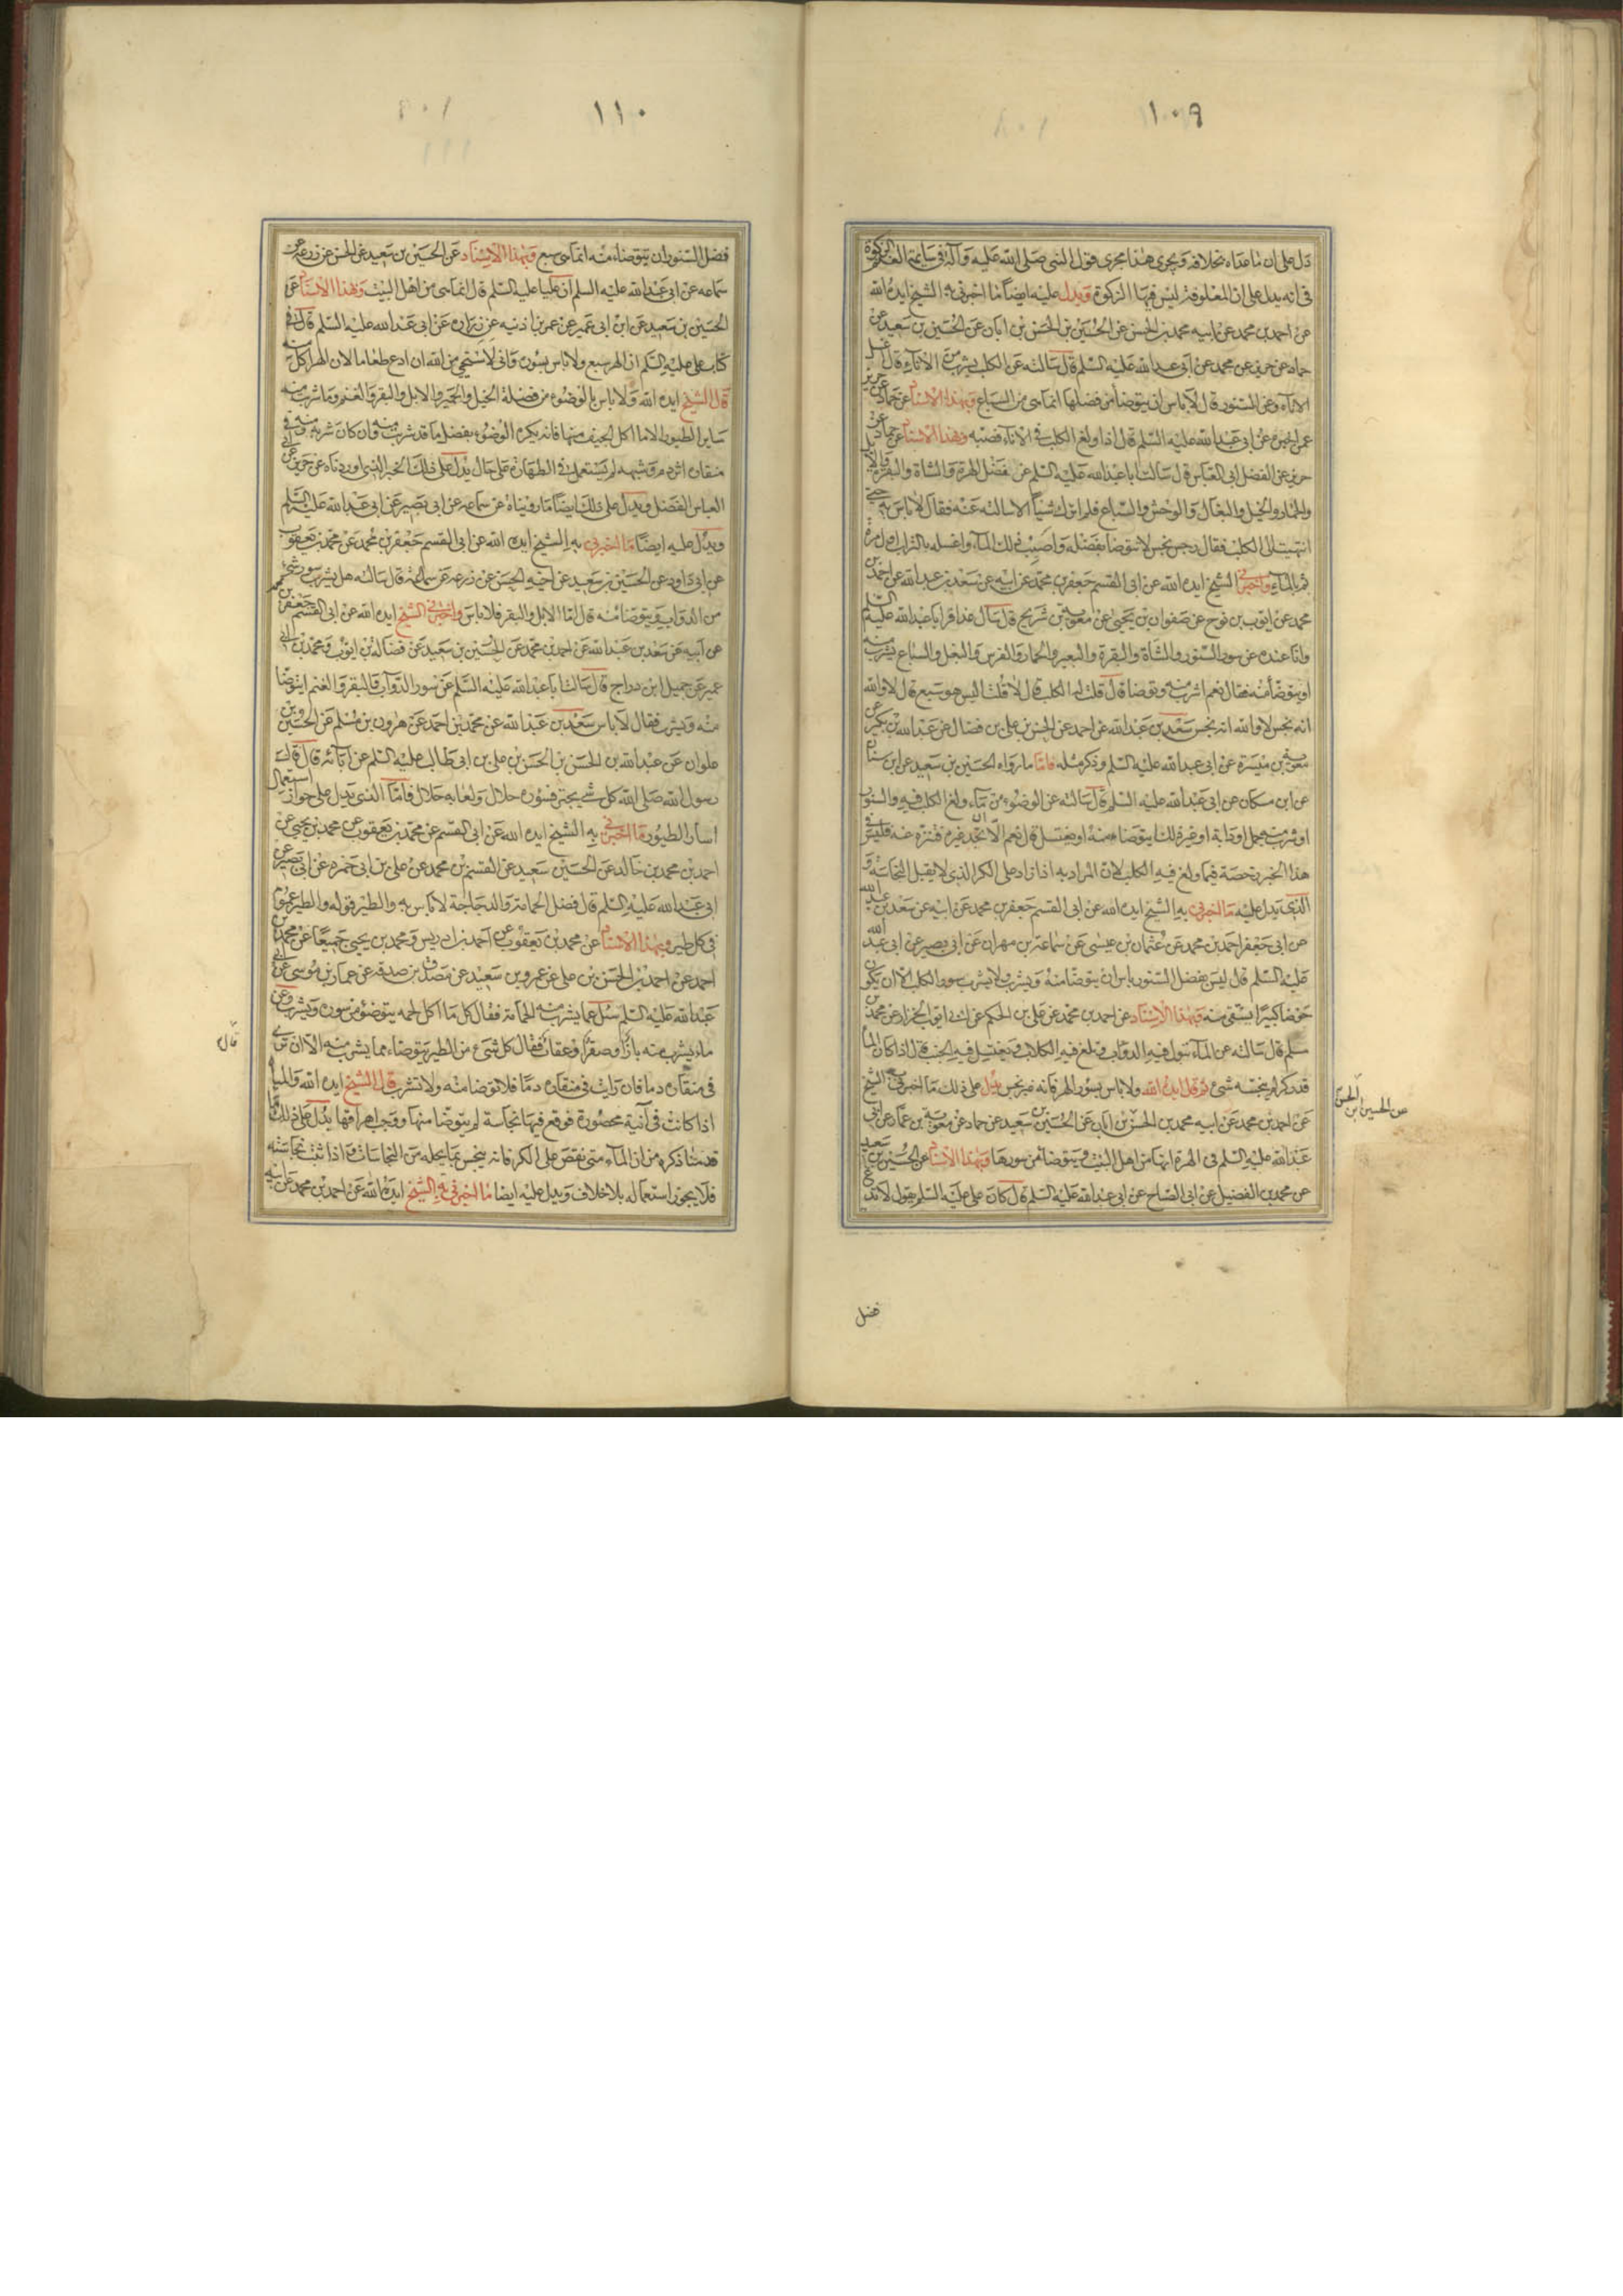 ١٠٩
دل على ان ما عداه بخلافه ويجرى هذا مجرى قول النبى صلى الله عليه وآله فى سائمة الغنم الزكوة
فى انه يدل على ان المعلوفة ليس فيها الزكوة ويدل عليه ايضا ما اخبرنى به الشيخ ايده الله
عن احمد بن محمد عن ابيه محمد بن الحسن عن الحسين بن الحسن بن ابان عن الحسين بن سعيد عن
حماد عن حريز عن محمد عن ابى عبد الله عليه السلم قال سالته عن الكلب يشرب من الاناء قال اغسل
الاناء وعن السنور قال لا باس ان يتوضا من فضلها انما هى من السباع وبهذا الاسناد عن حماد عن حريز
عمن اخبره عن ابى عبد الله عليه السلم قال اذا ولغ الكلب فى الاناء فصبه وبهذا الاسناد عن حماد عن
حريز عن الفضل ابى العباس قال سالت ابا عبد الله عليه السلم عن فضل الهرة والشاة والبقرة والابل
والحمار والخيل والبغال والوحش والسباع فلم اترك شيئا الا سالته عنه فقال لا باس به حتى
انتهيت الى الكلب فقال رجس نجس لا تتوضا بفضله واصبب ذلك الماء واغسله بالتراب اول مرة
ثم بالماء واخبرنى الشيخ ايده الله عن ابى القسم جعفر بن محمد عن ابيه عن سعد بن عبد الله عن احمد بن
محمد عن ايوب بن نوح عن صفوان بن يحيى عن معوية بن شريح قال سال عذافر ابا عبد الله عليه السلم
وانا عنده عن سور السنور والشاة والبقرة والبعير والحمار والفرس والبغل والسباع يشرب منه
او يتوضا منه فقال نعم اشرب منه وتوضا قال قلت له الكلب قال لا قلت اليس هو سبع قال لا والله
انه نجس لا والله انه نجس سعد بن عبد الله عن احمد عن الحسن بن على بن فضال عن عبد الله بن بكير عن
معوية بن ميسرة عن ابى عبد الله عليه السلم وذكر مثله فاما ما رواه الحسين بن سعيد عن ابن سنان
عن ابن مسكان عن ابى عبد الله عليه السلم قال سالته عن الوضوء من ماء ولغ الكلب فيه والسنور
او شرب منه جمل او دابة او غير ذلك ايتوضاء منه او يغتسل قال نعم الا ان تجد غيره فتنزه عنه فليس فى
هذا الخبر رخصة فيما ولغ فيه الكلب لان المراد به اذا زاد على الكر الذى لا يقبل النجاسة و
الذى يدل عليه ما اخبرنى به الشيخ ايده الله عن ابى القسم جعفر بن محمد عن ابيه عن سعد بن عبد الله
عن ابى جعفر احمد بن محمد عن عثمان بن عيسى عن سماعة بن مهران عن ابى بصير عن ابى عبد الله
عليه السلم قال ليس بفضل السنور باس ان يتوضا منه ويشرب ولا يشرب سور الكلب الا ان يكون
حوضا كبيرا يستقى منه وبهذا الاسناد عن احمد بن محمد عن على بن الحكم عن ابى ايوب الخزاز عن محمد بن
مسلم قال سالته عن الماء تبول فيه الدواب وتلغ فيه الكلاب ويغتسل فيه الجنب قال اذا كان الماء
قدر كر لم ينجسه شىء ثم قال ايده الله ولا باس بسور الهر فانه غير نجس يدل على ذلك ما اخبرنى به الشيخ
عن احمد بن محمد عن ابيه محمد بن الحسن بن ابان عن الحسين بن سعيد عن حماد عن معوية بن عمار عن ابى
عبد الله عليه السلم فى الهرة انها من اهل البيت ويتوضا من سورها وبهذا الاسناد عن الحسين بن سعيد
عن محمد بن الفضيل عن ابى الصباح عن ابى عبد الله عليه السلم قال كان على عليه السلم يقول لا تدع
عن الحسين ابن الحسن
فضل
١١٠
فضل السنور ان يتوضاء منه انما هى سبع وبهذا الاسناد عن الحسين بن سعيد عن الحسن عن زرعة عن
سماعه عن ابى عبد الله عليه السلم ان عليا عليه السلم قال انما هى من اهل البيت وبهذا الاسناد عن
الحسين بن سعيد عن ابن ابى عمير عن عمر بن اذنيه عن زراره عن ابى عبد الله عليه السلم قال فى
كتاب على عليه السلم ان الهر سبع ولا باس بسوره وانى لاستحى من الله ان ادع طعاما لان الهر اكل منه
قال الشيخ ايده الله ولا باس بالوضوء من فضلة الخيل والحمير والابل والبقر والغنم وما شرب منه
ساير الطيور الا ما اكل الجيف منها فانه يكره الوضوء بفضل ما قد شرب منه وان كان شربه منه وفى
منقاره اثر دم وشبهه لم يستعمل فى الطهارة على حال يدل على ذلك الخبر الذى اوردناه عن حريز عن ابى
العباس الفضل ويدل على ذلك ايضا ما رويناه عن سماعه عن ابى بصير عن ابى عبد الله عليه السلم
ويدل عليه ايضا ما اخبرنى به الشيخ ايده الله عن ابى القسم جعفر بن محمد عن محمد بن يعقوب
عن ابى داود عن الحسين بن سعيد عن اخيه الحسن عن زرعه عن سماعة قال سالته هل يشرب سور شىء
من الدواب ويتوضا منه قال اما الابل والبقر فلا باس واخبرنى الشيخ ايده الله عن ابى القسم جعفر بن محمد
عن ابيه عن سعد بن عبد الله عن احمد بن محمد عن الحسين بن سعيد عن فضالة بن ايوب ومحمد بن ابى
عمير عن جميل ابن دراج قال سالت ابا عبد الله عليه السلم عن سور الدواب والبقر والغنم ايتوضا
منه ويشرب فقال لا باس سعد بن عبد الله عن محمد بن احمد عن هرون بن مسلم عن الحسين بن
علوان عن عبد الله بن الحسن بن الحسن بن على بن ابى طالب عليه السلم عن آبائه قال قال
رسول الله صلى الله كل شىء يجتر فسوره حلال ولعابه حلال فاما الذى يدل على جواز استعمال
اسار الطيور ما اخبرنى به الشيخ ايده الله عن ابى القسم عن محمد بن يعقوب عن محمد بن يحيى عن
احمد بن محمد بن خالد عن الحسين سعيد عن القسم بن محمد عن على بن ابى حمزه عن ابى بصير عن
ابى عبد الله عليه السلم قال فضل الحمامة والدجاجة لا باس به والطير قوله والطير عموم
فى كل طير وبهذا الاسناد عن محمد بن يعقوب عن احمد بن ادريس ومحمد بن يحيى جميعا عن محمد بن
احمد عن احمد بن الحسن بن على عن عمرو بن سعيد عن مصدق بن صدقه عن عمار بن موسى عن ابى
عبد الله عليه السلم سئل عما يشرب منه الحمامة فقال كل ما اكل لحمه يتوضؤ من سوره ويشرب وعن
ماء يشرب منه باز او صقر او عقاب فقال كل شىء من الطير يتوضاء مما يشرب منه الا ان ترى
فى منقاره دما فان رايت فى منقاره دما فلا توضا منه ولا تشرب قال الشيخ ايده الله والمياه
اذا كانت فى آنية محصورة فوقع فيها نجاسة لم يتوضا منها ووجب اهراقها يدل على ذلك ما
قدمنا ذكره من ان الماء متى نقص على الكر فانه ينجس بما يحله من النجاسات واذا ثبت نجاسته
فلا يجوز استعماله بلا خلاف ويدل عليه ايضا ما اخبرنى به الشيخ ايده الله عن احمد بن محمد عن ابيه
قال